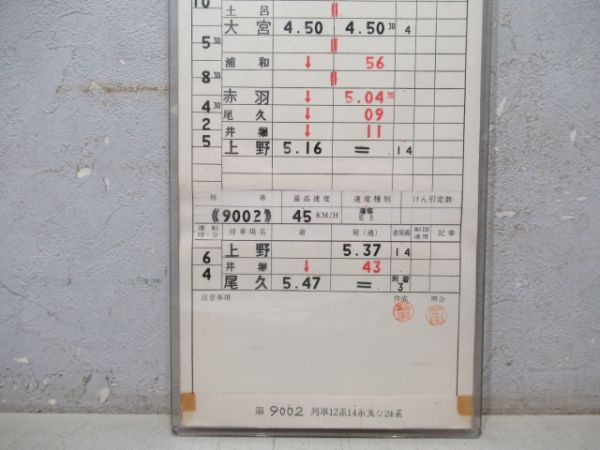 10
土呂
大宮 4.50 4.50 30 4
5 30
浦和 ↓ 56
8 30
赤羽 ↓ 5.04 30
4 30
尾久 ↓ 09
2
井堀 ↓ 11
5
上野 5.16 = 14
列車 最高速度 速度種別 けん引定数
《9002》 45 KM/H
運転時分 停車場名 着 発(通) 着発線 制限速度 記事
上野 5.37 14
6
井堀 ↓ 43
4
尾久 5.47 = 3
注意事項 作成 照合
第 9002 列車12系14系及び24系